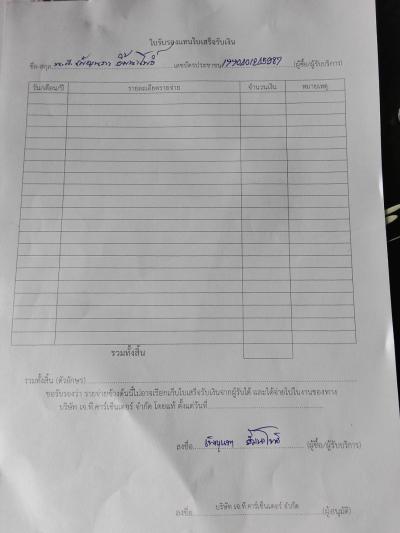 ใบรับรองแทนใบเสร็จรับเงิน
ชื่อ-สกุล น.ส. เลขบัตรประชาชน (ผู้ซื้อ/ผู้รับบริการ)
วัน/เดือน/ปี รายละเอียดรายจ่าย จำนวนเงิน หมายเหตุ
รวมทั้งสิ้น
รวมทั้งสิ้น (ตัวอักษร)
ขอรับรองว่า รายจ่ายข้างต้นนี้ไม่อาจเรียกเก็บใบเสร็จรับเงินจากผู้รับได้ และได้จ่ายไปในงานของทาง
บริษัท เจ.พี.คาร์เซ็นเตอร์ จำกัด โดยแท้ ตั้งแต่วันที่
ลงชื่อ (ผู้ซื้อ/ผู้รับบริการ)
บริษัท เจ.พี.คาร์เซ็นเตอร์ จำกัด
ลงชื่อ (ผู้อนุมัติ)